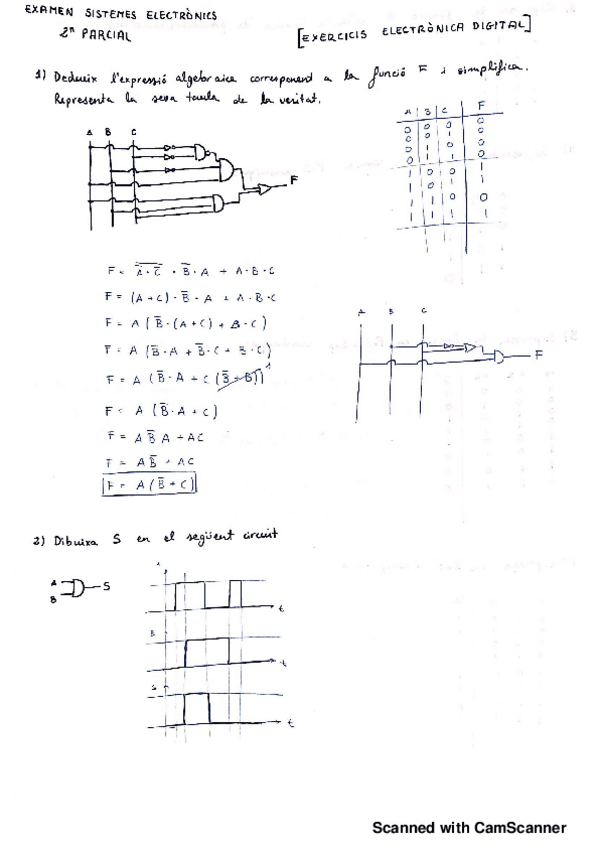 EXAMEN SISTEMES ELECTRÒNICS
2n PARCIAL
[EXERCICIS ELECTRÒNICA DIGITAL]
1) Dedueix l'expressió algebraica corresponent a la funció F i simplifica.
Representa la seva taula de la veritat.
A B C F
0 0 0 0
0 0 1 0
0 1 0 0
0 1 1 0
1 0 0 1
1 0 1 1
1 1 0 0
1 1 1 1
A B C
F
F = \overline{\overline{A}·\overline{C}} · \overline{B}·A + A·B·C
F = (A+C)·\overline{B}·A + A·B·C
F = A(\overline{B}·(A+C) + B·C)
F = A(\overline{B}·A + \overline{B}·C + B·C)
F = A(\overline{B}·A + C(\overline{B}+B)) 1
F = A(\overline{B}·A + C)
F = A\overline{B}A + AC
F = A\overline{B} + AC
F = A(\overline{B}+C)
A B C
F
2) Dibuixa S en el següent circuit
A
B
S
t
B
t
S
t
Scanned with CamScanner